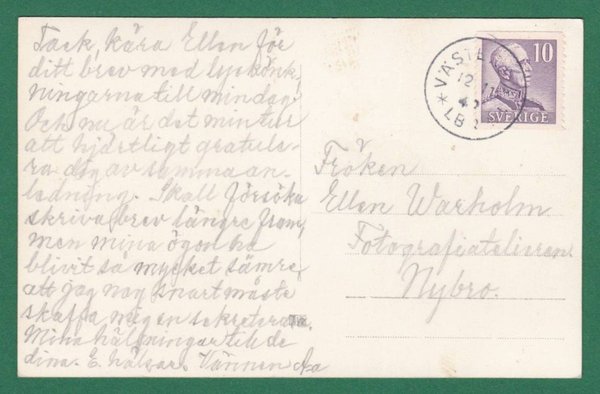 Tack, kära Ellen för
ditt brev med lyckönk-
ningarna till min dag.
Och nu är det min tur
att hjärtligt gratule-
ra dig av samma an-
ledning. Skall försöka
skriva brev längre fram,
men mina ögon ha
blivit så mycket sämre,
att jag nog snart måste
skaffa mig en sekreterare.
Mina hälsningar till de
dina. E. hälsar. Vännen
VÄSTE
12.11
LB
10
SVERIGE
Fröken
Ellen Warholm
Fotografiateljeen
Nybro.